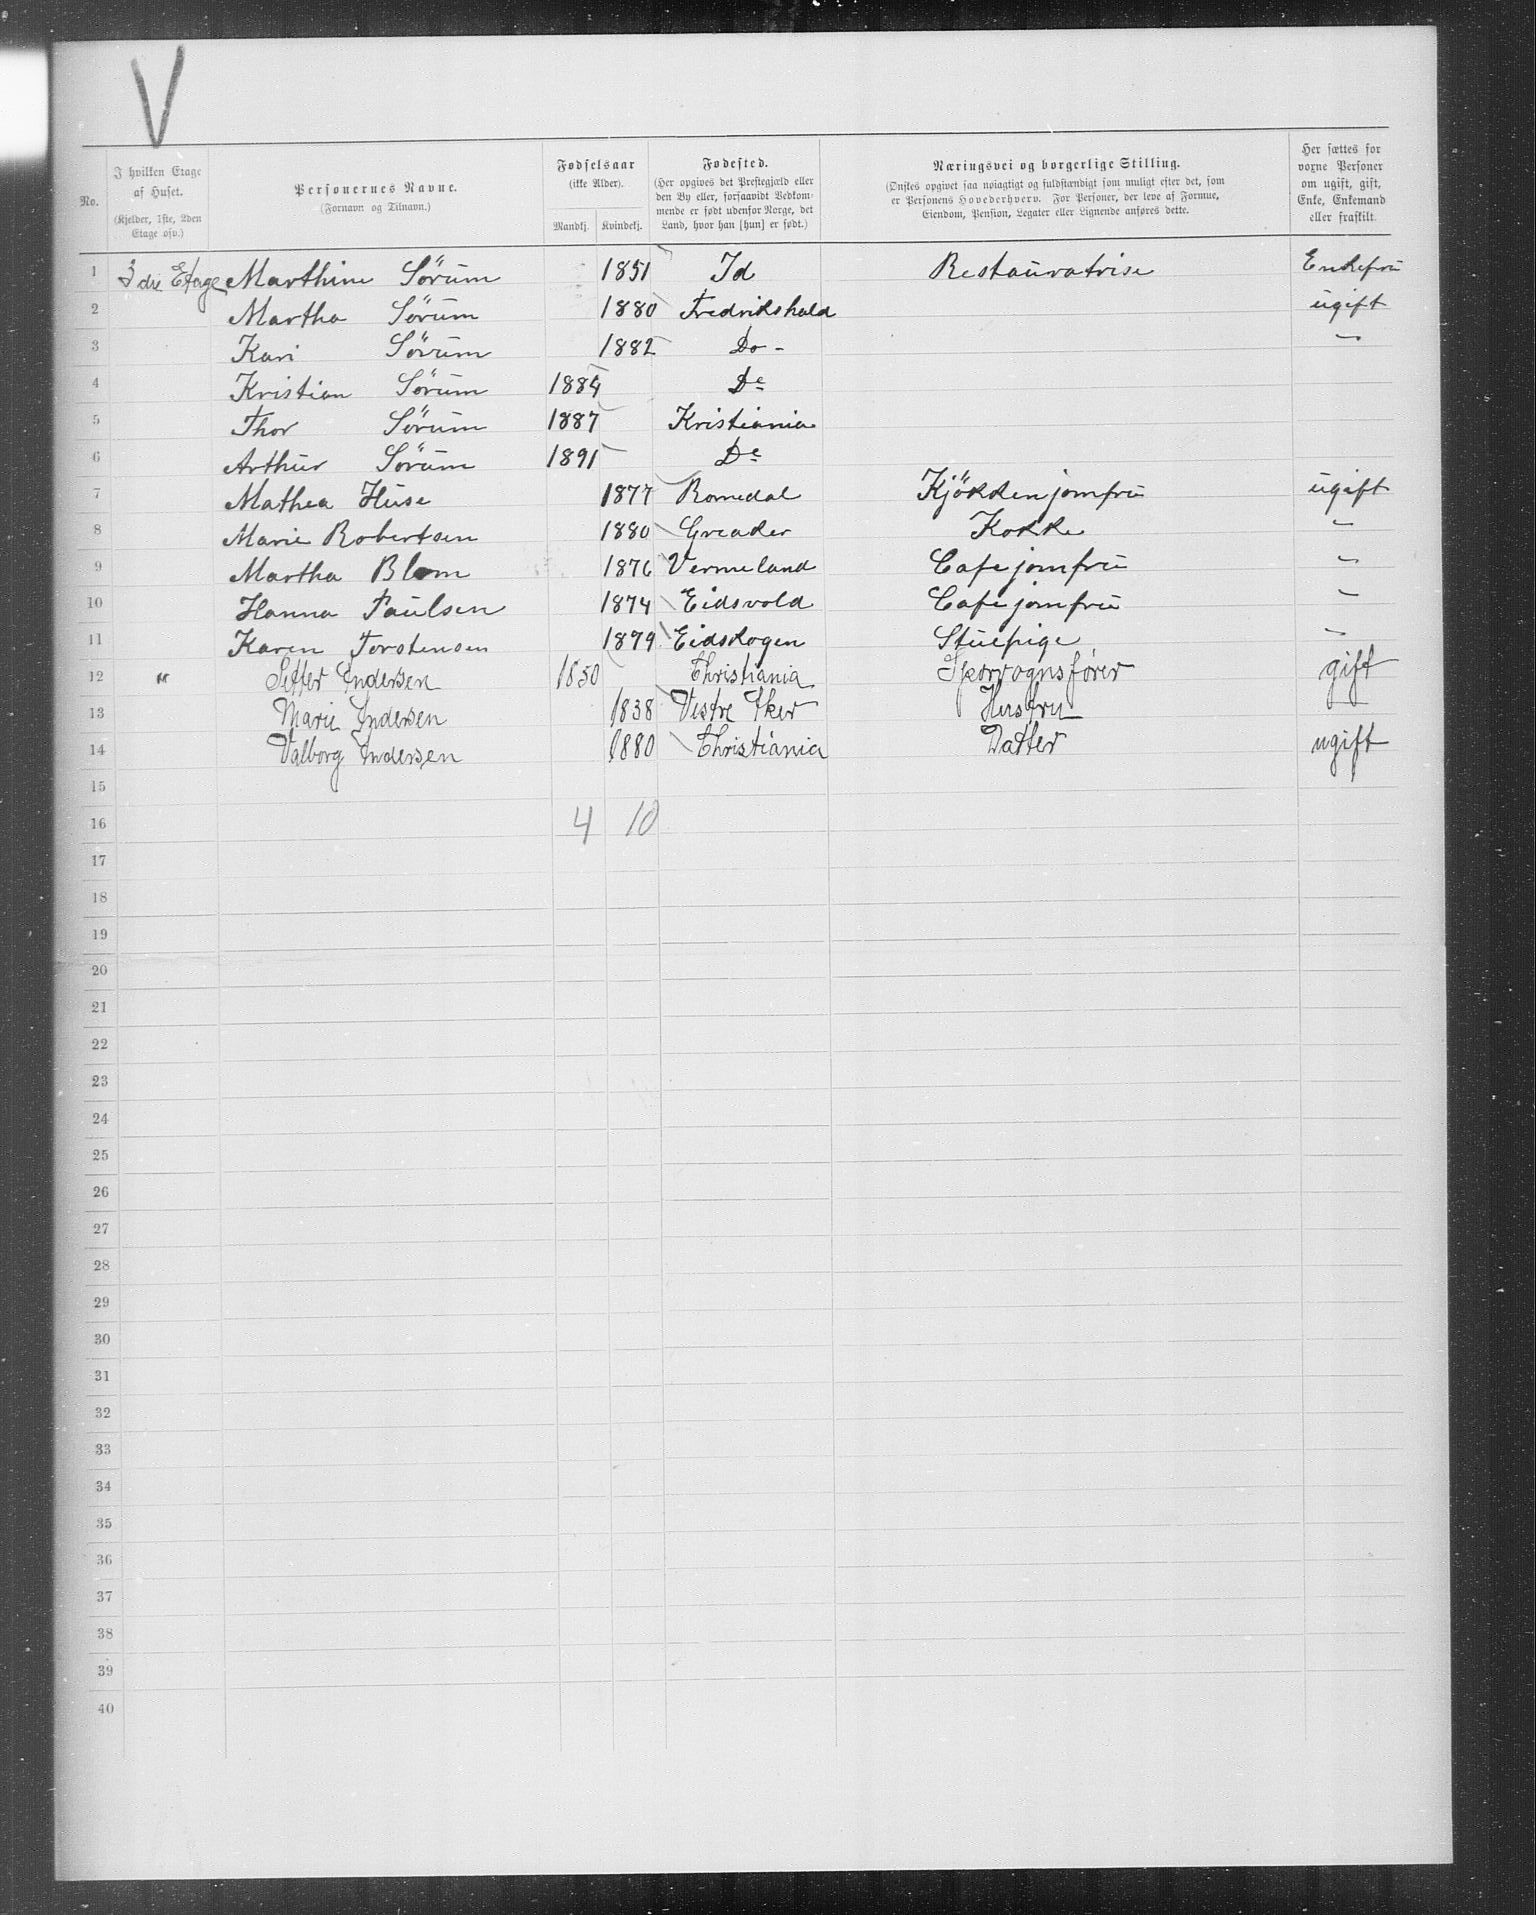 V
No.
I hvilken Etage af Huset.
(Kjelder, 1ste, 2den Etage osv.)
Personernes Navne.
(Fornavn og Tilnavn.)
Fødselsaar
(ikke Alder).
Mandkj. Kvindekj.
Fødested.
(Her opgives det Prestegjæld eller
den By eller, forsaavidt Vedkom-
mende er født udenfor Norge, det
Land, hvor han [hun] er født.)
Næringsvei og borgerlige Stilling.
(Ønskes opgivet saa nøiagtigt og fuldstændigt som muligt efter det, som
er Personens Hovederhverv. For Personer, der leve af Formue,
Eiendom, Pension, Legater eller Lignende anføres dette.
Her sættes for
voxne Personer
om ugift, gift,
Enke, Enkemand
eller fraskilt.
1 3die Etage Marthine Sørum 1851 Id Restauratrise Enkefru
2 Martha Sørum 1880 Fredrikshald ugift
3 Kari Sørum 1882 Do - –
4 Kristian Sørum 1884 Do
5 Thor Sørum 1887 Kristiania
6 Arthur Sørum 1891 Do
7 Mathea Huse 1877 Romedal Kjøkkenjomfru ugift
8 Marie Robertsen 1880 Greaker Kokke –
9 Martha Blom 1876 Vermeland Cafejomfru –
10 Hanna Paulsen 1874 Eidsvold Cafejomfru –
11 Karen Torstensen 1879 Eidskogen Stuepige –
12 " Petter Andersen 1850 Christiania Sporvognsfører gift
13 Marie Andersen 1838 Vestre Aker Husfru —
14 Valborg Andersen 1880 Christiania Datter ugift
15
16 4 10
17
18
19
20
21
22
23
24
25
26
27
28
29
30
31
32
33
34
35
36
37
38
39
40